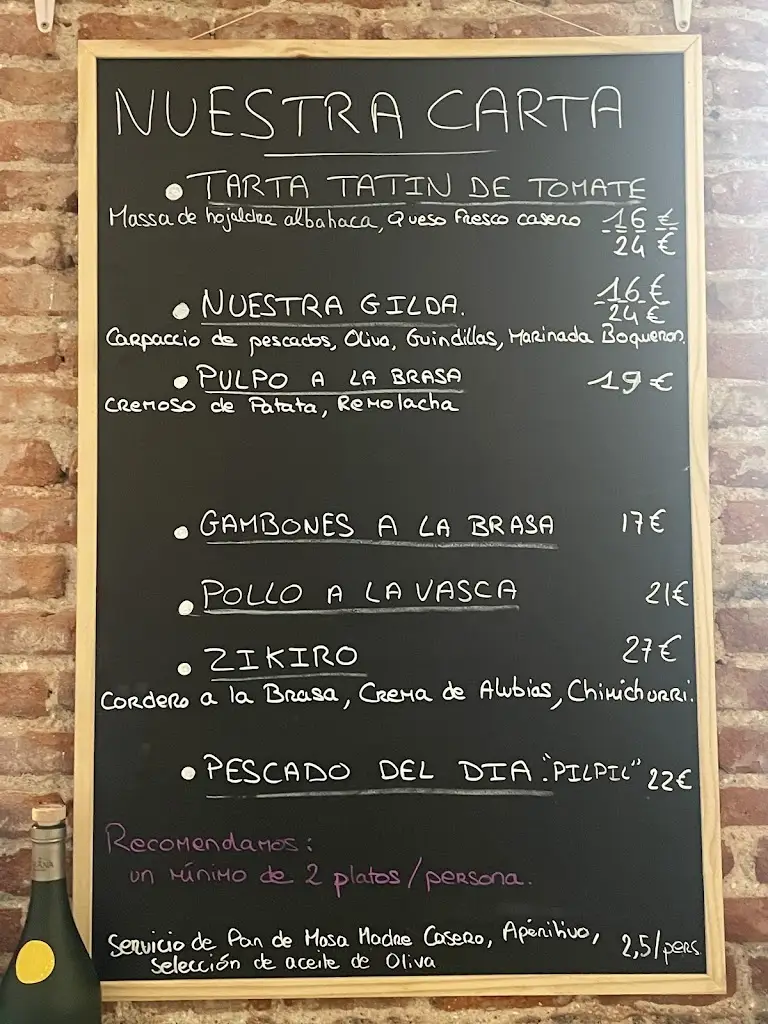 NUESTRA CARTA
• TARTA TATIN DE TOMATE
Massa de hojaldre albahaca, Queso Fresco casero 16 €
24 €
• NUESTRA GILDA. 16 €
24 €
Carpaccio de pescados, Oliva, Guindillas, Marinada Boqueron.
• PULPO A LA BRASA 19 €
CREMOSO de Patata, Remolacha
• GAMBONES A LA BRASA 17€
• POLLO A LA VASCA 21€
• ZIKIRO 27€
CORDERO a la Brasa, CREMA de Alubias, Chimichurri.
• PESCADO DEL DIA. "PILPIL" 22€
Recomendamos:
un mínimo de 2 platos/persona.
Servicio de Pan de Masa Madre Casero, Apéritivo, 2,5/pers.
Selección de aceite de Oliva